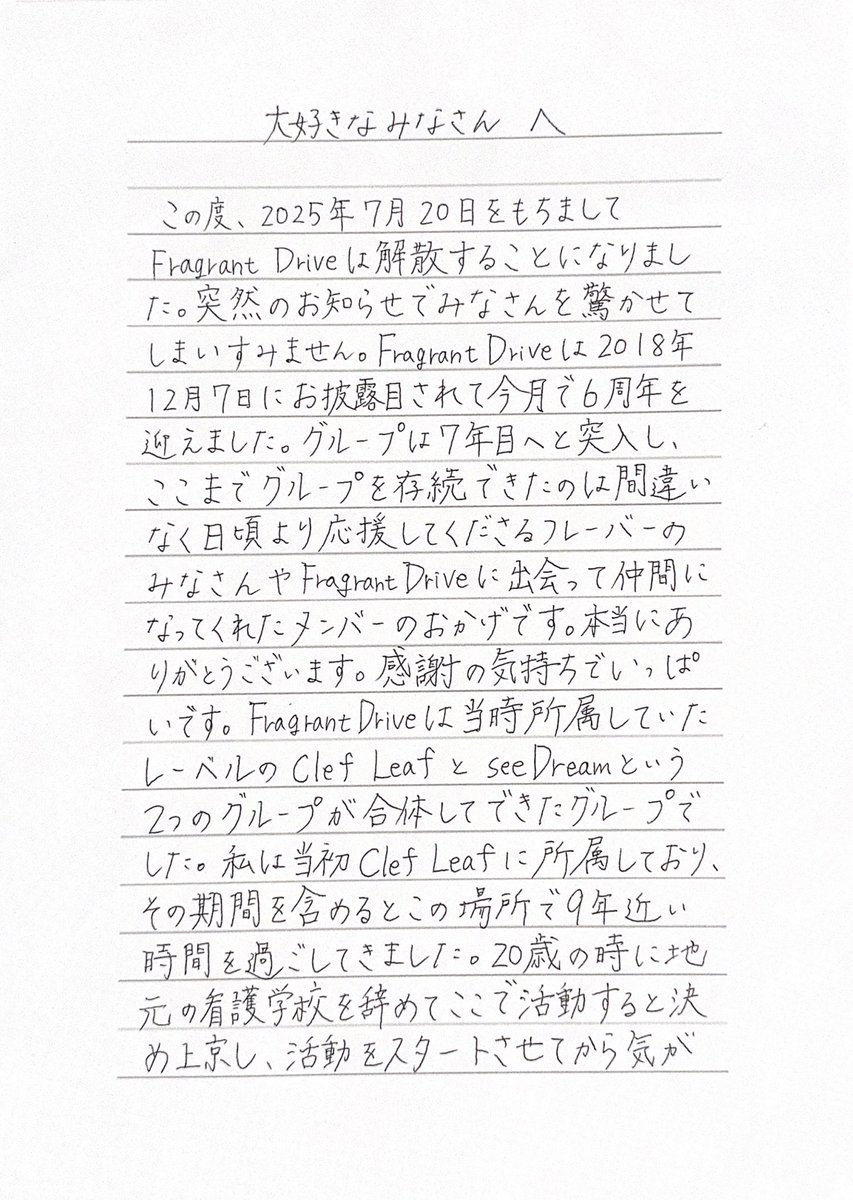 大好きなみなさん へ
この度、2025年7月20日をもちまして
Fragrant Driveは解散することになりまし
た。突然のお知らせでみなさんを驚かせて
しまいすみません。Fragrant Driveは2018年
12月7日にお披露目されて今月で6周年を
迎えました。グループは7年目へと突入し、
ここまでグループを存続できたのは間違い
なく日頃より応援してくださるフレーバーの
みなさんやFragrant Driveに出会って仲間に
なってくれたメンバーのおかげです。本当にあ
りがとうございます。感謝の気持ちでいっぱ
いです。Fragrant Driveは当時所属していた
レーベルのClef Leafとsee Dreamという
2つのグループが合体してできたグループで
した。私は当初Clef Leafに所属しており、
その期間を含めるとこの場所で9年近い
時間を過ごしてきました。20歳の時に地
元の看護学校を辞めてここで活動すると決
め上京し、活動をスタートさせてから気が